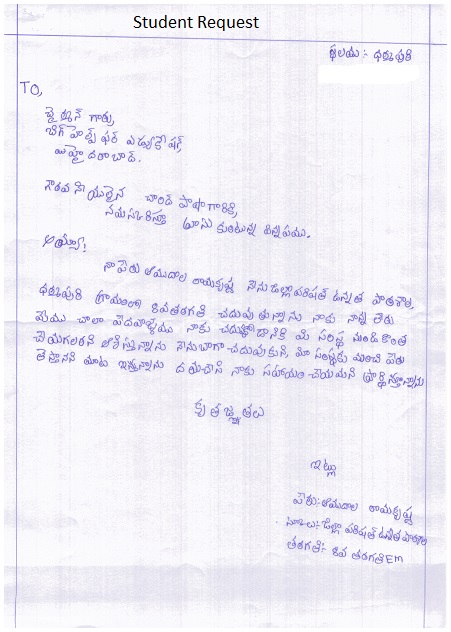 Student Request
స్థలము:- ధర్మపురి
TO,
ఛైర్మన్ గారు,
బిగ్ హెల్ప్ ఫర్ ఎడ్యుకేషన్
హైదరాబాద్.
గౌరవనీయులైన చాంద్ పాషా గారికి,
నమస్కరిస్తూ వ్రాసుకుంటున్న విన్నపము.
అయ్యా!
నా పేరు ఆముదాల రామకృష్ణ నేను జిల్లా పరిషత్ ఉన్నత పాఠశాల,
ధర్మపురి గ్రామంలో 8వ తరగతి చదువుతున్నాను నాకు నాన్న లేరు
మేము చాలా పేదవాళ్ళము నాకు చదువుకోడానికి మీ సంస్థ నుండి కొంత
చేయగలరని ఆశిస్తున్నాను నేను బాగా చదువుకుని, మా సంస్థకు మంచి పేరు
తెస్తానని మాట ఇస్తున్నాను దయచేసి నాకు సహాయం చేయమని ప్రార్థిస్తున్నాను
కృతజ్ఞతలు
ఇట్లు
పేరు:- ఆముదాల రామకృష్ణ
జిల్లా పరిషత్ ఉన్నత పాఠశాల
తరగతి:- 8వ తరగతి EM